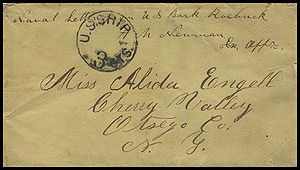 Naval Letter U S Bark Roebuck
Newman
Ex. Off.
U.S. SHIP
3 CTS.
Miss Alida Engell
Cherry Valley
Otsego Co.
N. Y.